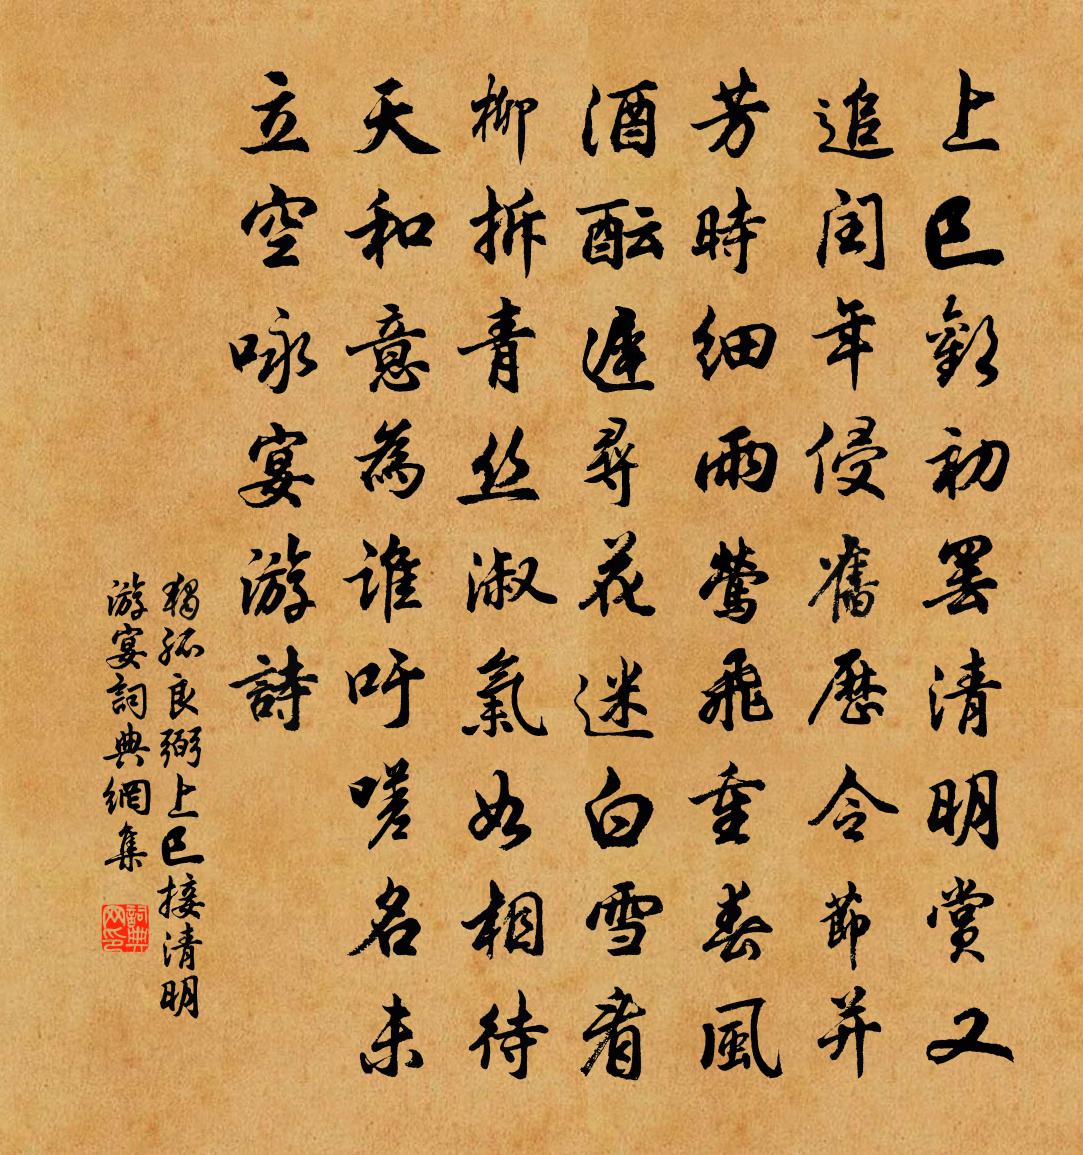 上巳歡初罷清明賞又
追閏年侵舊歷令節并
芳時細雨鶯飛重春風
酒醞遲尋花迷白雪看
柳拆青丝淑氣如相待
天和意為誰吁嗟名未
立空咏宴游詩
獨孤良弼上巳接清明
游宴詞典網集
詞典
网印